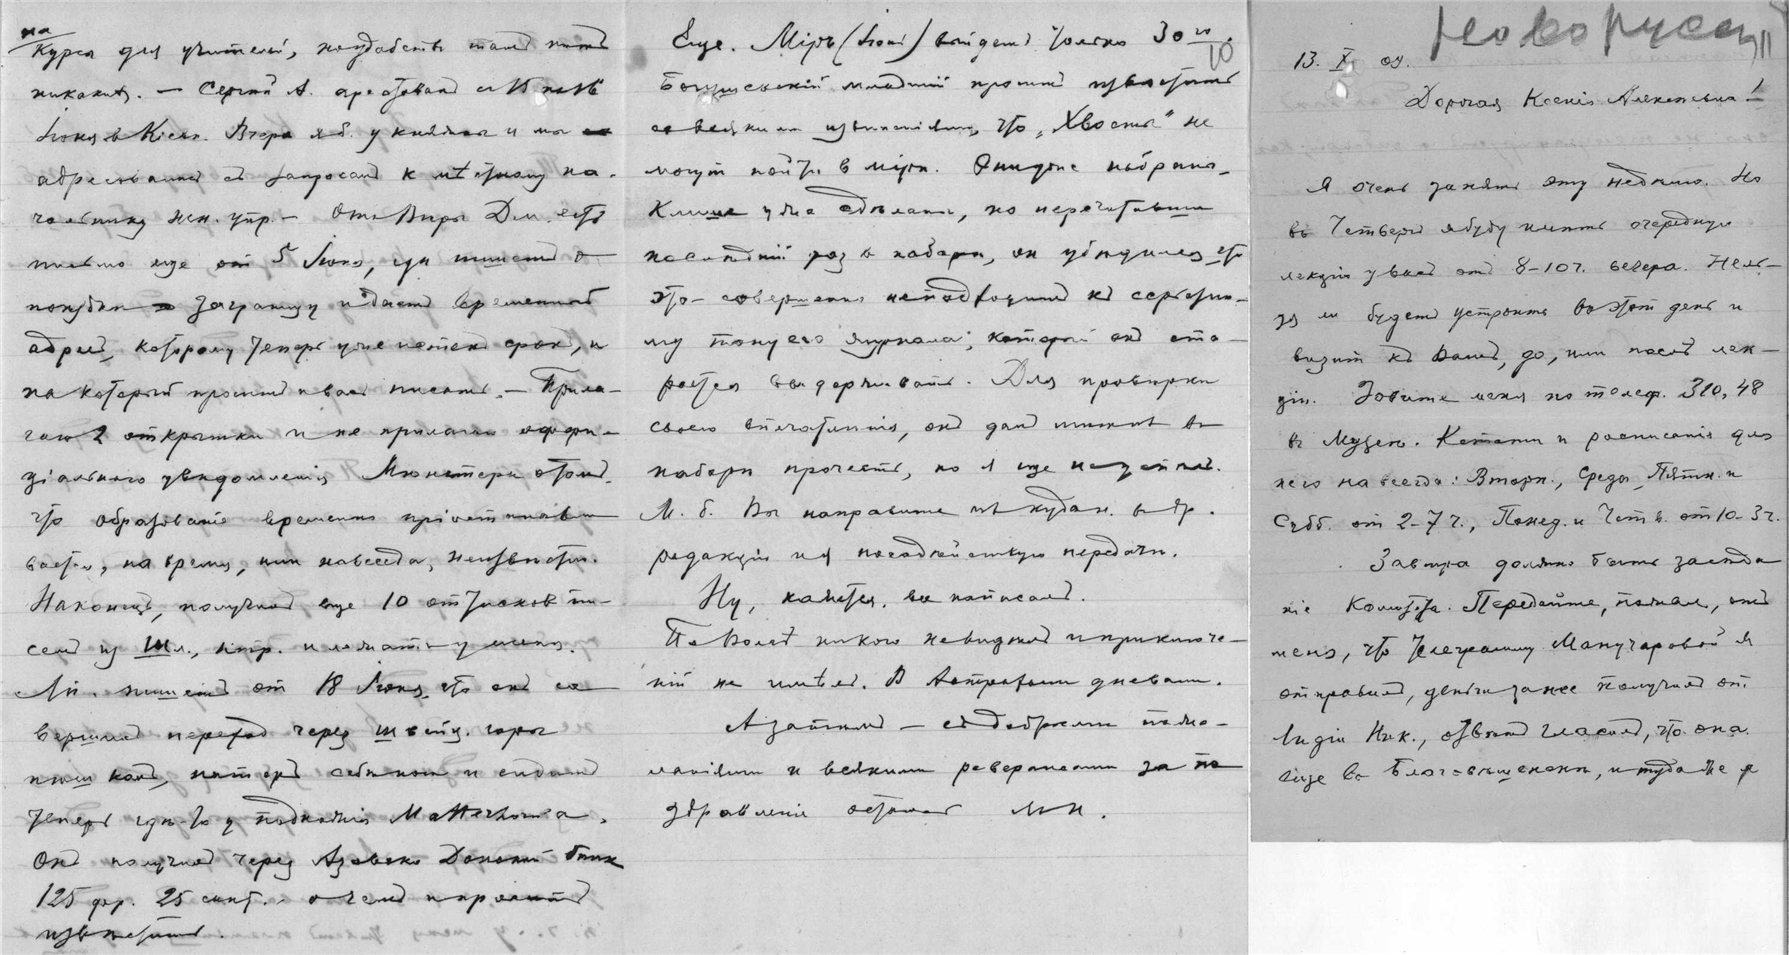 на
Курсы для учителей, неудобств там нет
никаких. — Сергей А. арестован
Июня в Кіеве. Вчера я б. у княжны и мы
адресовались съ запросом к мѣстному на-
чальнику жен. упр. — От Вѣры Дм. есть
письмо еще от 5 Іюня, гдѣ пишет о
поѣздке заграницу и дает временный
адрес, которому теперь уже истек срок, и
на который просит и вас писать. — Прила-
гаю 2 открытки и не прилагаю оффи-
ціального увѣдомленія о том,
что образованіе временно пріостанавли-
вается, на время, или навсегда, неизвѣстно.
Наконец, получил еще 10 оттисков пи-
сем из Шл., и лежат у меня.
пишет от 18 Іюня, что он со-
вершил переход через швейц. горы
пѣшком, натер себѣ ноги и сидит
теперь гдѣ-то у подножія Маттерхорна.
Он получил через Азовско Донской банк
125 фр. 25 сант. о чем и просит
извѣстить.
Еще. Міръ (Іюнь) выйдет только 30 го.
10
Богушевскій младший просит извѣстить
со всякими извиненіями, что „Хвосты" не
могут пойти в міръ. Они уже набраны,
Клише уже сдѣланы, но перечитавши
послѣдній раз в наборѣ, он убѣдился что
это совершенно неподходит къ серьезно-
му тону его журнала, который он ста-
рается выдерживать. Для провѣрки
своего впечатлѣнія, он дал мнѣ в
наборѣ прочесть, но я еще не успѣл.
М. б. Вы направите их куда н. в др.
редакцію и я посодѣйствую передачи.
Ну, кажется, все написал.
По Волгѣ никого не видѣл и приключе-
ній не имѣл. В Астрахани дневал.
А затѣм — съ добрыми поже-
ланіями и всякими реверансами за по
здравленіе остаюсь
Новорусск
11
13. X. 09.
Дорогая Ксенія Алексѣевна!
Я очень занятъ эту недѣлю. Но
въ Четверг я буду читать очередную
лекцію у вас от 8-10 ч. вечера. Нель-
зя ли будет устроить въ этот день и
визит къ Вам, до, или послѣ лек-
ціи. Зовите меня по телеф. 310,48
въ Музею. Кстати и расписаніе для
него на всегда: Вторн., Среда, Пятн. и
Субб. от 2-7 ч., Понед. и Четв. от 10-3 ч.
Завтра должно быть засѣда
ніе Комитета. Передайте, пожал., от
меня, что Телеграмму Манучаровой я
отправил, деньги за нее получил от
Лидіи Ник., отвѣт гласил, что она
еще въ Благовѣщенскѣ, и туда же я